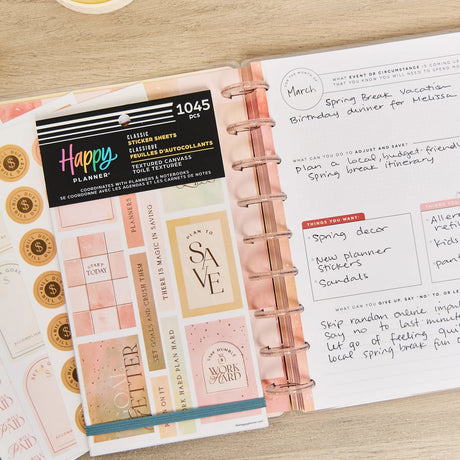 1045
pcs
CLASSIC
STICKER SHEETS
CLASSIQUE
FEUILLES D'AUTOCOLLANTS
TEXTURED CANVAS
TOILE TEXTURÉE
Happy
PLANNER®
COORDINATES WITH PLANNERS & NOTEBOOKS
SE COORDONNE AVEC LES PLANNERS ET LES CARNETS DE NOTES
START
TODAY
PLANNERS
THERE IS MAGIC IN SAVING
SET GOALS AND CRUSH THEM
PLAN TO
SAVE
GOAL
GETTER
PLAN ON IT
WORK HARD PLAN HARD
STAY HUMBLE
WORK HARD
IN THE MONTH OF
March
WHAT EVENT OR CIRCUMSTANCE IS COMING UP
THAT YOU KNOW YOU WILL NEED TO SPEND MON
Spring Break Vacation
Birthday dinner for Melissa
WHAT CAN YOU DO TO ADJUST AND SAVE?
Plan a local, budget-friendly
Spring break itinerary
THINGS YOU WANT:
THINGS
• Spring decor
• New planner
stickers
• Sandals
WHAT CAN YOU GIVE UP, SAY "NO" TO, OR LE
Skip random online impu
Say no to last minut
let go of feeling guilt
local spring break fun